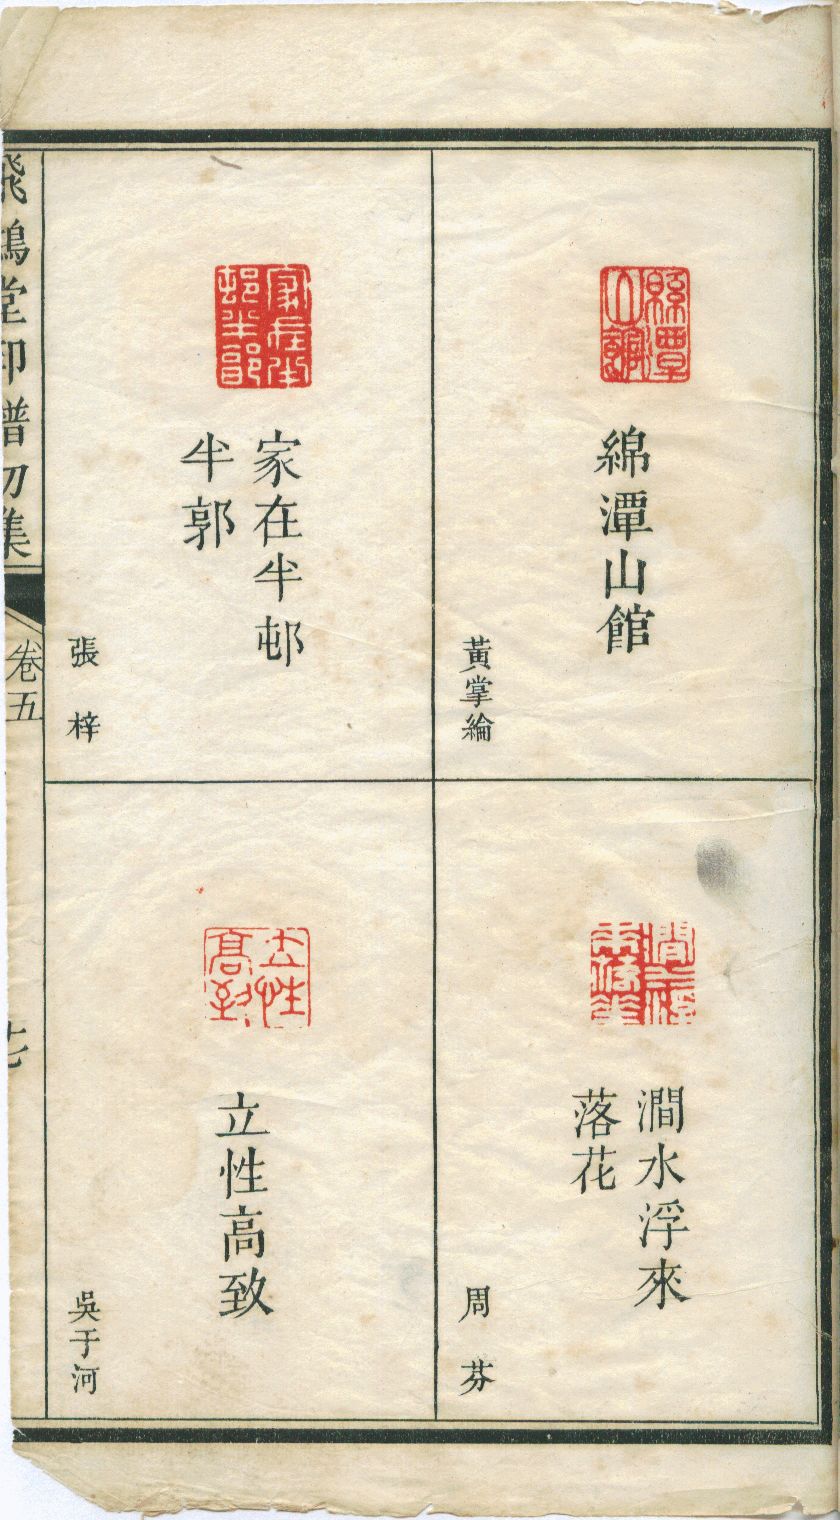 綿潭山館
黃掌綸
澗水浮來
落花
周芬
家在半邨
半郭
張梓
立性高致
吳于河
飛鴻堂印譜初集
卷五